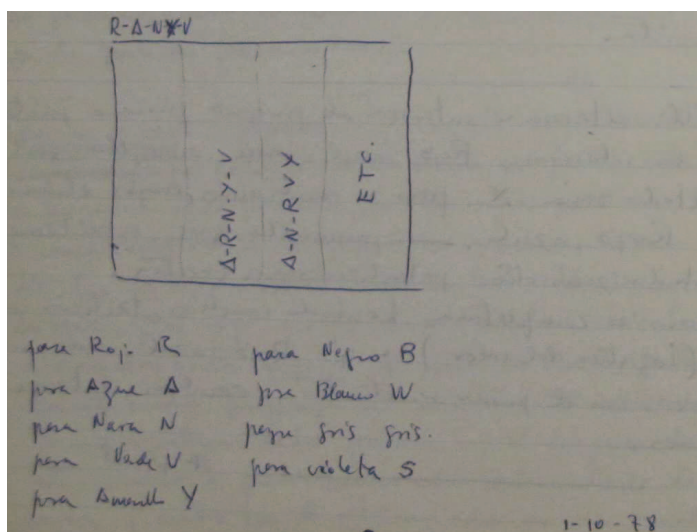 R-A-N-Y-V
A-R-N-Y-V
A-N-R V Y
ETC.
para Rojo R
para Azul A
para Nara N
para Verde V
para Amarillo Y
para Negro B
para Blanco W
para gris gris.
para violeta S
1-10-78